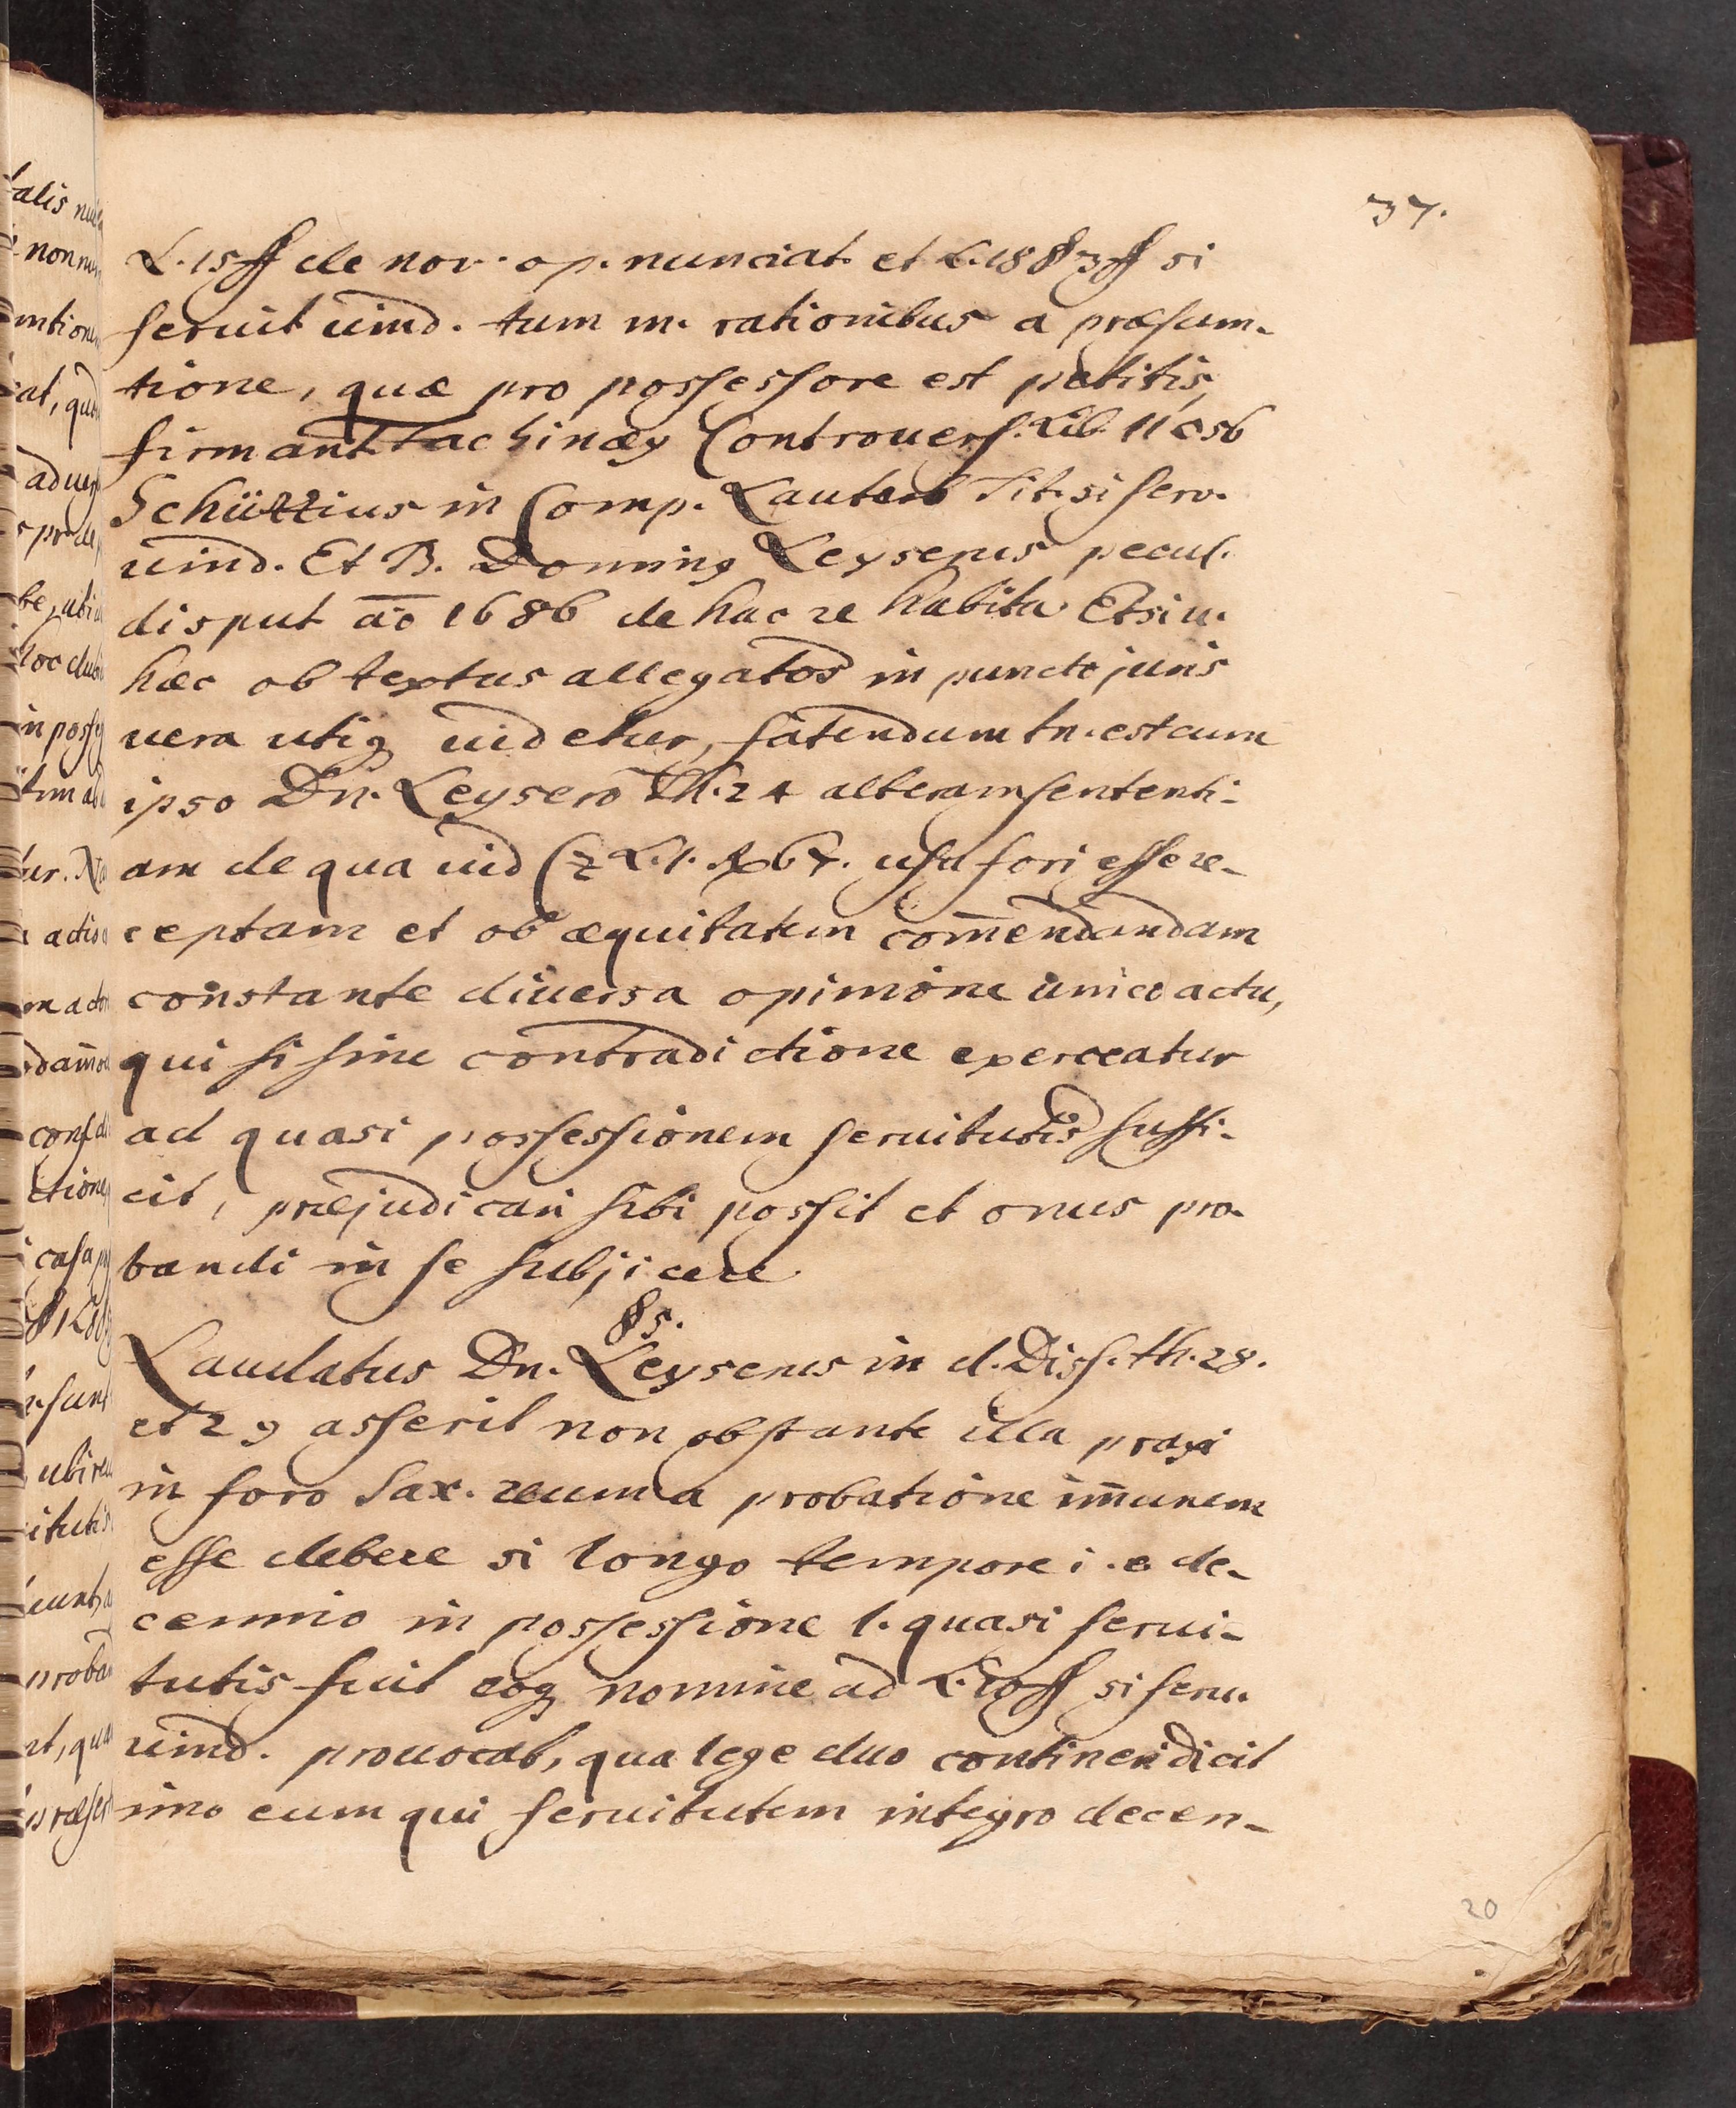 37.
L. 15 ff de nov. op. nunciat. et L. 18 § 3 ff si
seruit uind. tum m. rationibus a præsum-
tione, quæ pro possessore est petitis,
firmant Fachinæy Controuers. Lib. 11 c 56
Schützius in Comp. Lauterb Tit. si serv.
uind. Et B. Doming Leyserus pecul.
disput aō 1686 de hac re habita Etsi u.
hæc ob textus allegatos in puncto juris
uera utiq uidetur, fatendum tn. est cum
ipso Dn. Leysero Th. 24 alteram sententi-
am de qua uid Cz L. 1. 67. usu fori esse re-
ceptam et ob æquitatem com̄endandam
constante diuersa opinione unico actu,
qui si sine contradictione exerceatur
ad quasi possessionem seruitutis suffi-
cit, præjudicari sibi possit et onus pro-
bandi in se subjicere.
§ 5.
Laudatus Dn. Leyserus in d. Diss. th. 28.
et 29 asserit non obstante illa praxi
in foro Sax. reum a probatione im̄unem
esse debere si longo tempore i. e de-
cennio in possessione l. quasi serui-
tutis fuit eoq nomine ad L. 10 ff si seru.
uind. prouocat, qua lege duo contineri dicit
imo eum qui seruitutem integro decen-
20